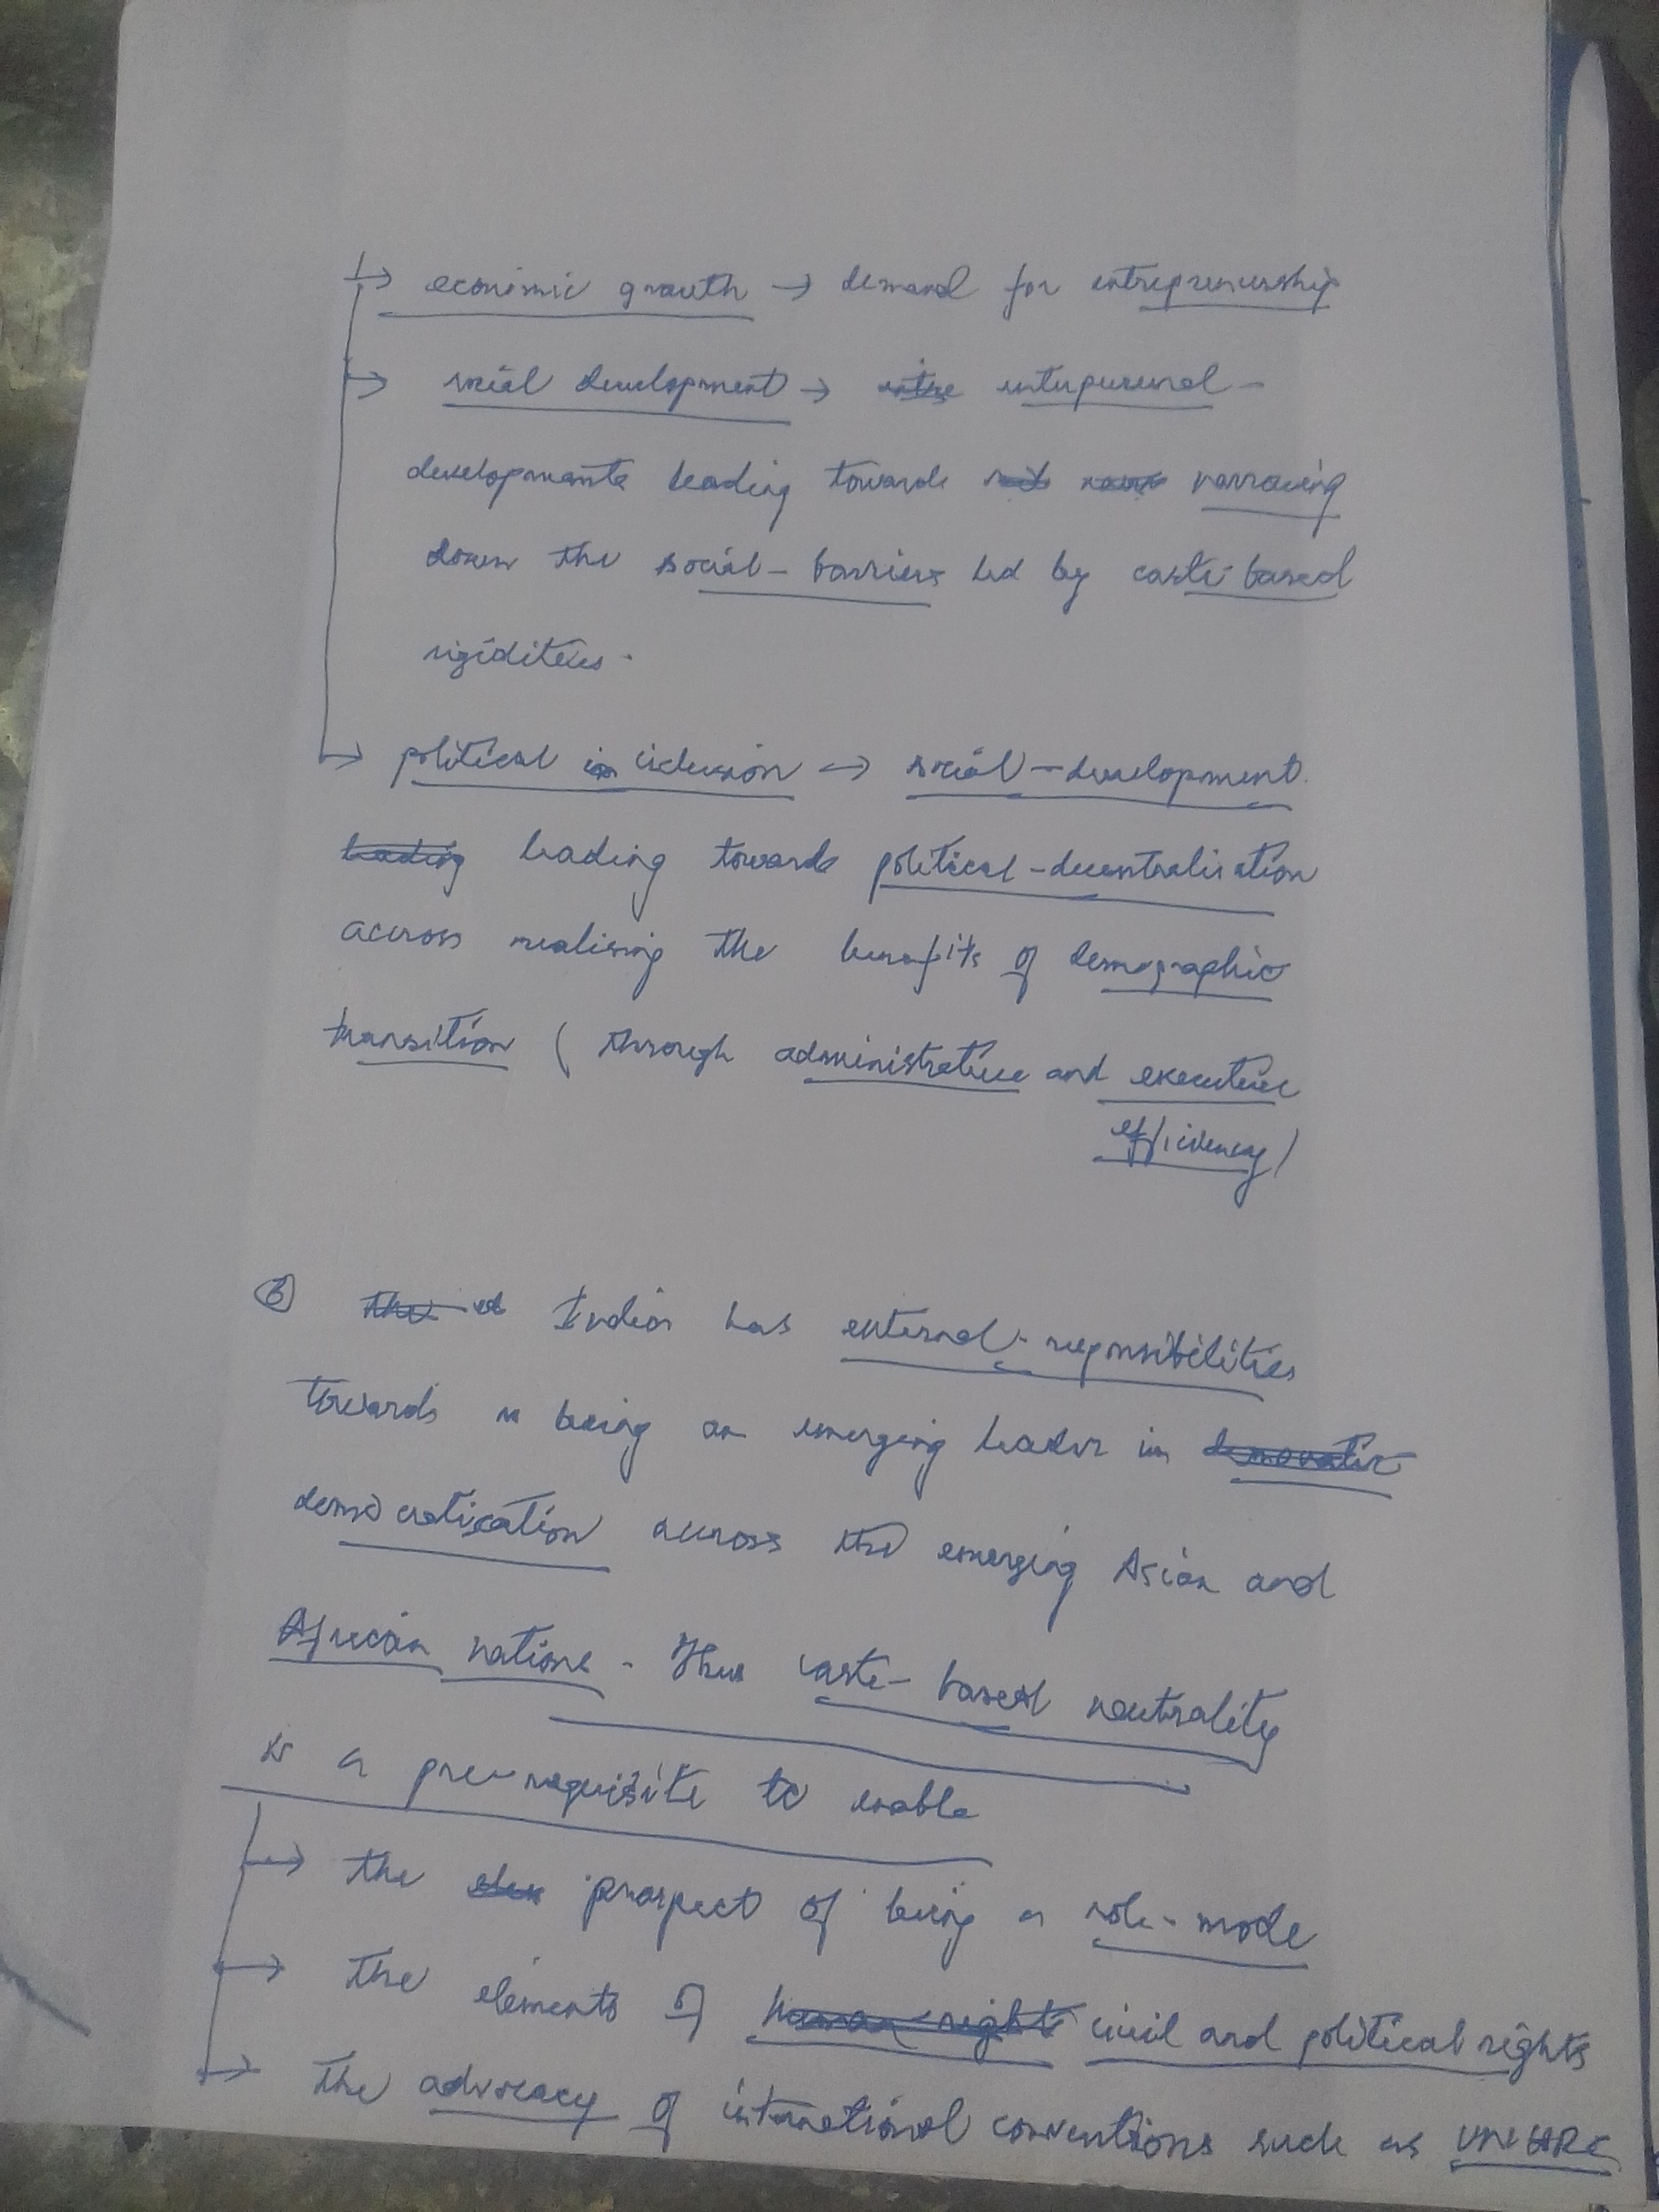 → economic growth → demand for entrepreneurship
→ social development → enterpurenal -
developments leading towards narrowing
down the social - barriers led by caste-based
rigidities.
→ political inclusion → social - development.
leading leading towards political - decentralisation
across realising the benefits of demographic
transition ( through administrative and executive
efficiency)
the India has external - reponsibilities
towards being an emerging leader in
democratisation across the emerging Asian and
African nations. Thus caste- based neutrality
is a pre-requisite to enable
→ the prospect of being a role-mode
→ the elements of human rights civil and political rights
→ the advocacy of international conventions such as UNHRC